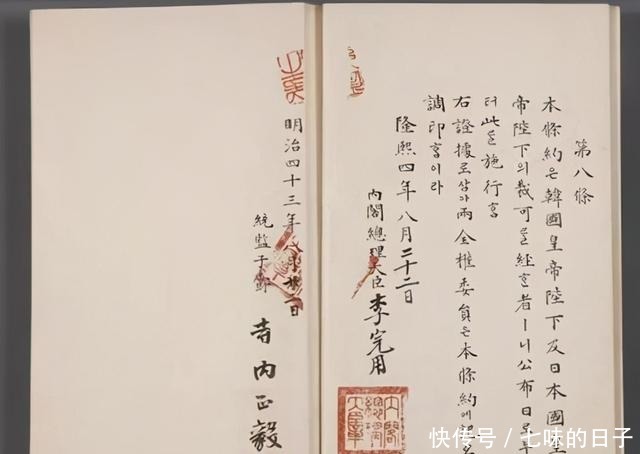 第八條
本條約은韓國皇帝陛下及日本國皇
帝陛下의裁可를經한者ㅣ니公布日로
터此를施行홈
右證據로삼아兩全權委員은本條約에
調印홈이라
隆熙四年八月二十二日
內閣總理大臣李完用
明治四十三年八月二十二日
統監子爵 寺內正毅
快传号/七味的日子